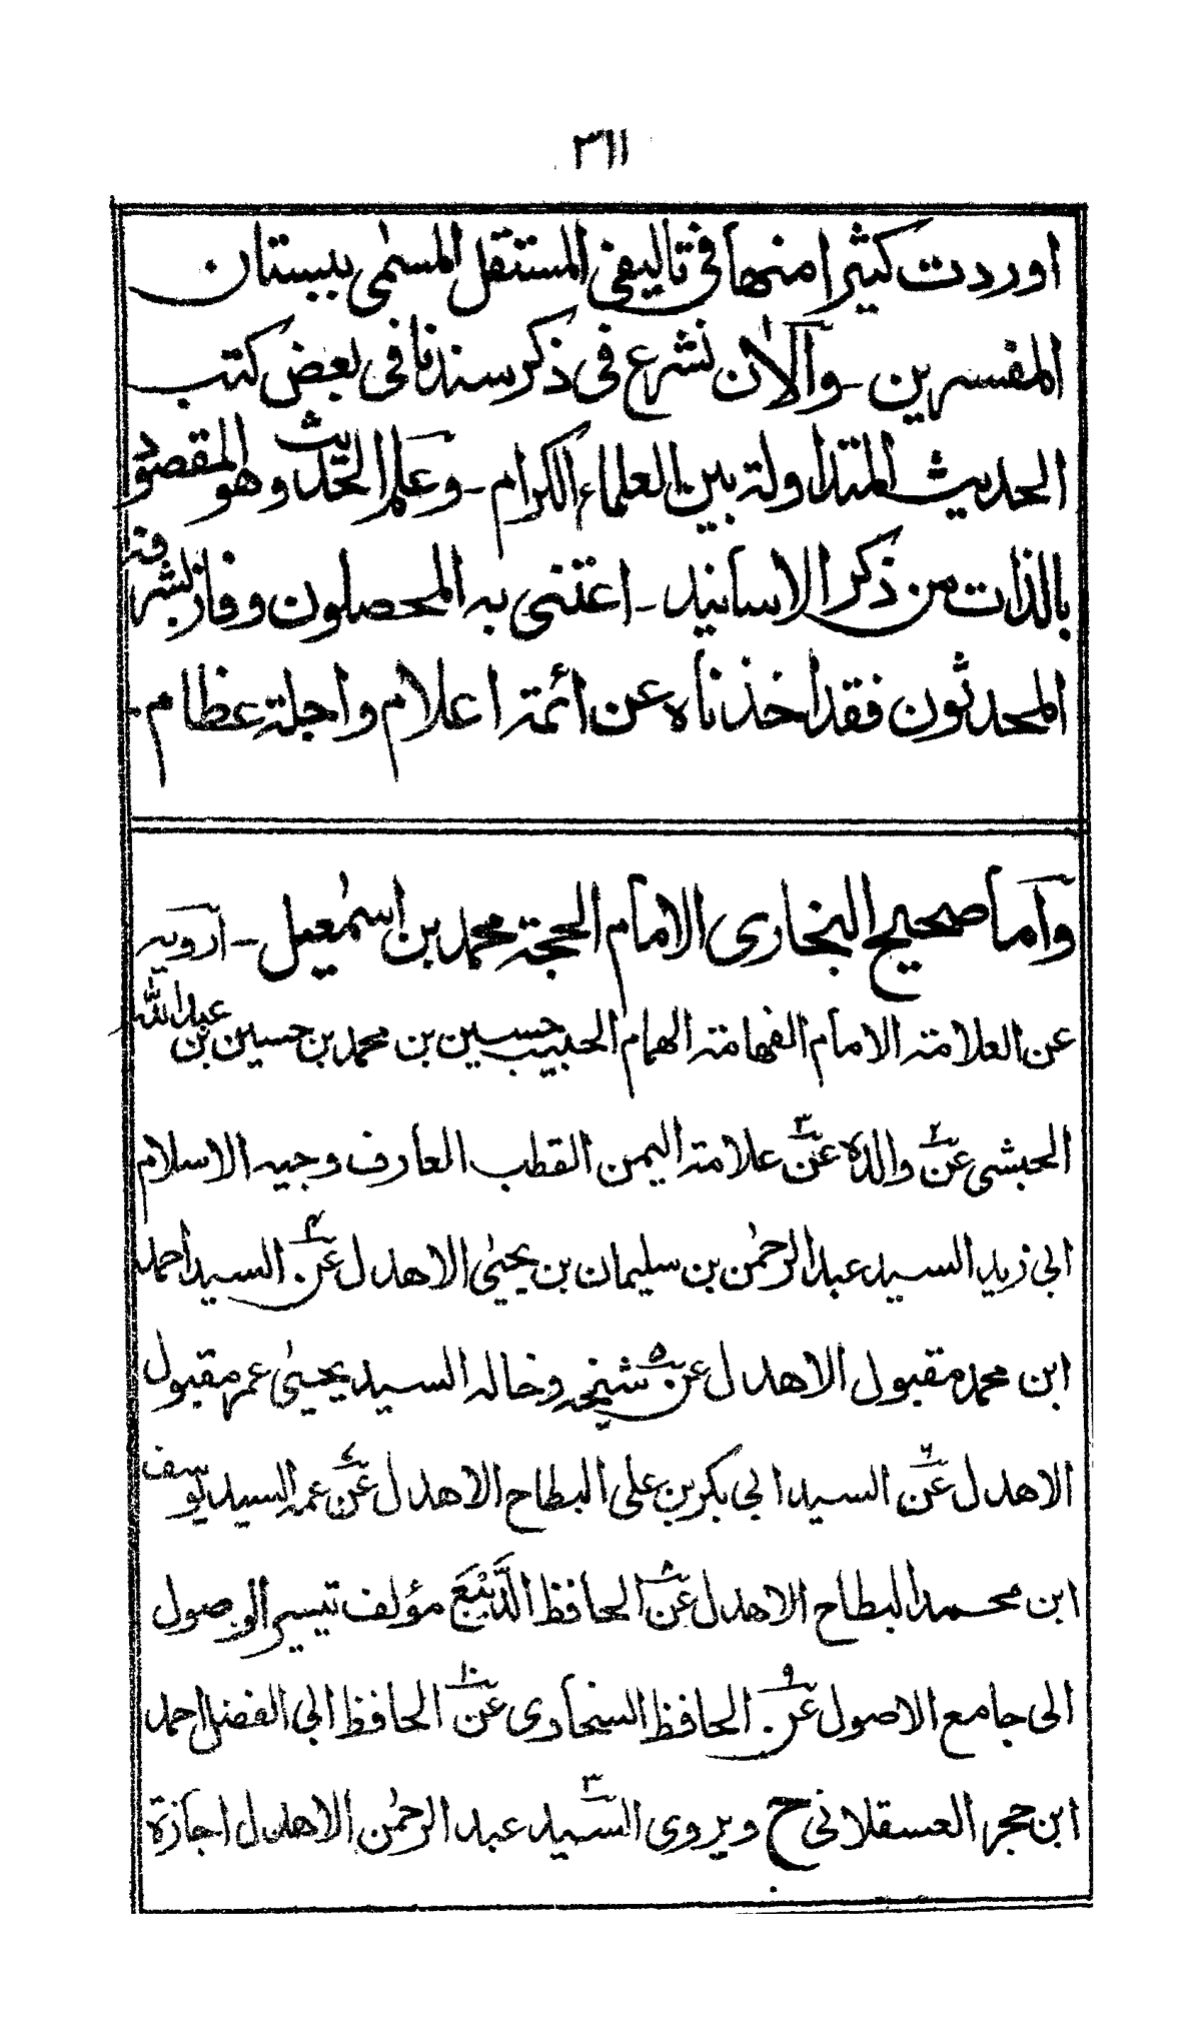 ٣١١
اوردت كثيرا منها فى تاليفى المستقل المسمٰى ببستان
المفسرين ـ والآن نشرع فى ذكر سندنا فى بعض كتب
الحديث المتداولة بين العلماء الكرام ـ وعلم الحديث وهو المقصود
بالذات من ذكر الاسانيد ـ اعتنى به المحصلون وفاز بشرافته
المحدثون فقد اخذناه عن ائمة اعلام واجلة عظام ـ
وآما صحيح البخارى الامام الحجة محمد بن اسمٰعيل ـ ارويه
عن العلامة الامام الفهامة الهمام الحبيب حسين بن محمد بن حسين بن عبد الله
الحبشى عن٢ والده عن٣ علامة اليمن القطب العارف وجيه الاسلام
ابى زيد السيد عبد الرحمٰن بن سليمان بن يحيىٰ الاهدل عن٤ السيد احمد
ابن محمد مقبول الاهدل عن٥ شيخه وخاله السيد يحيىٰ عمر مقبول
الاهدل عن٦ السيد ابى بكر بن على البطاح الاهدل عن٧ عمه السيد يوسف
ابن محمد البطاح الاهدل عن٨ الحافظ الدَّيْبَع مؤلف تيسير الوصول
الى جامع الاصول عن٩ الحافظ السخاوى عن١٠ الحافظ ابى الفضل احمد
ابن حجر العسقلانى ح ويروى السيد٣ عبد الرحمٰن الاهدل اجازة